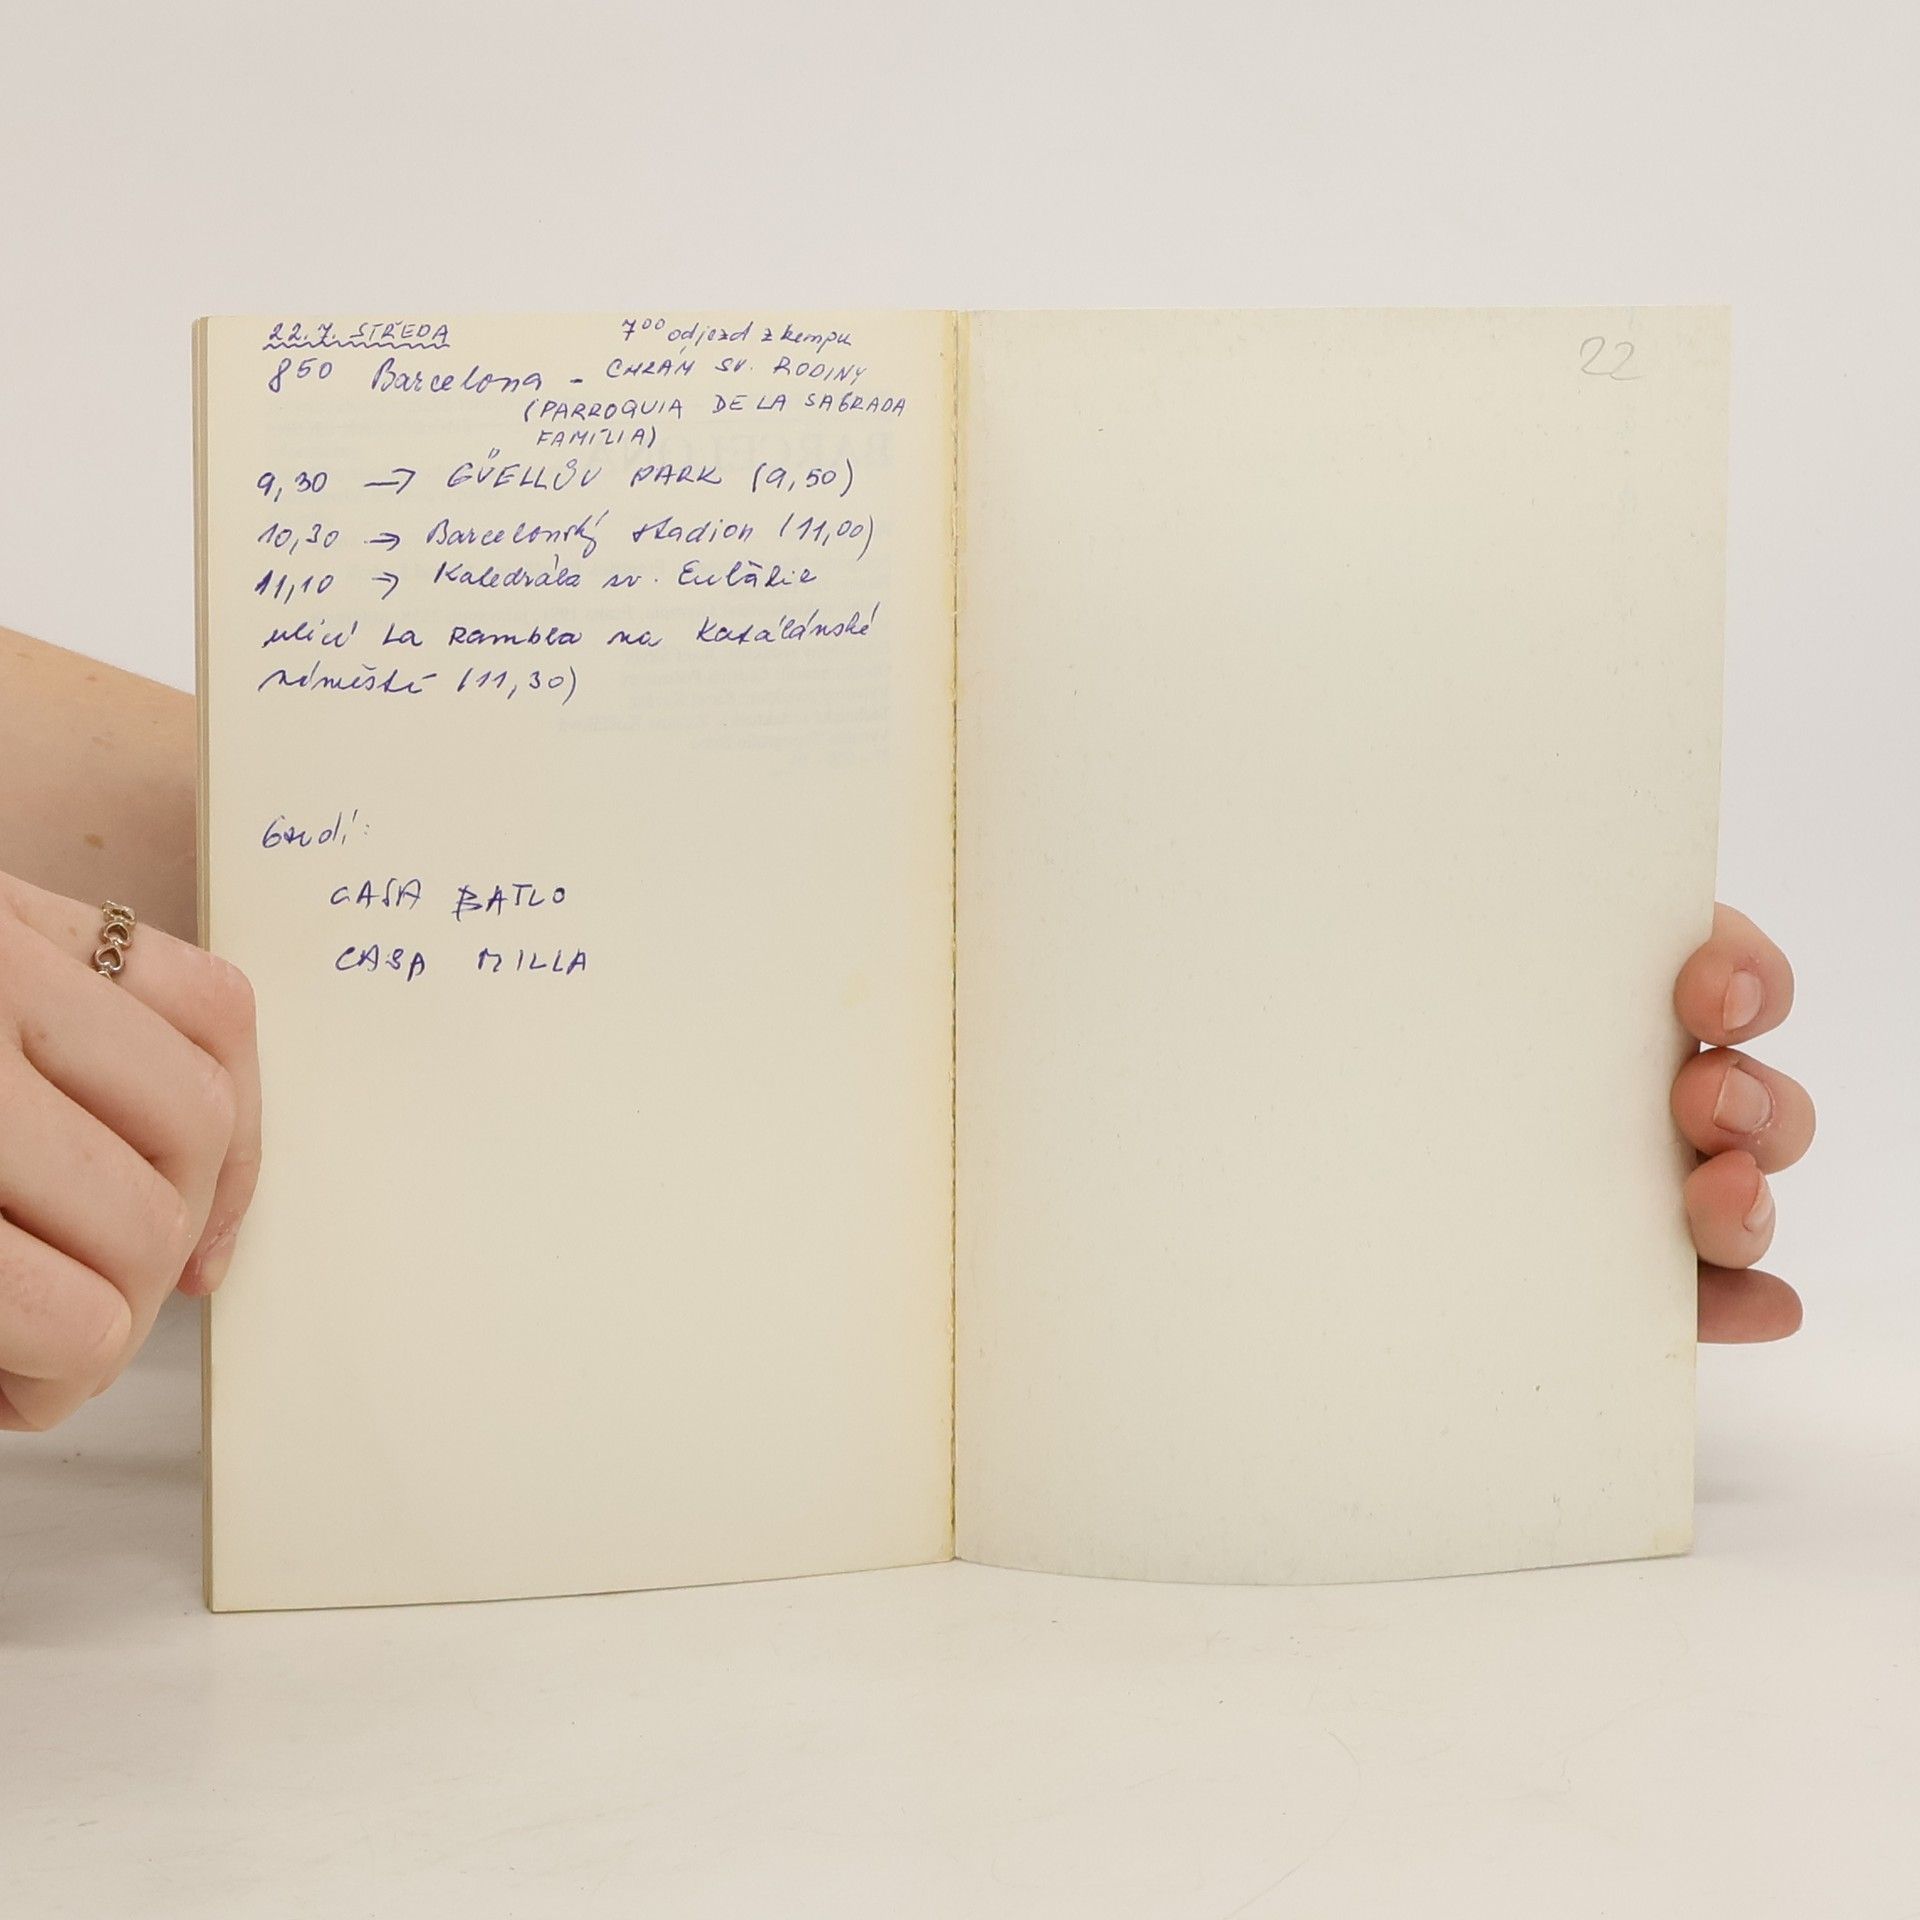 22.7. STŘEDA 7⁰⁰ odjezd z kempu
8⁵⁰ Barcelona - CHRÁM SV. RODINY
(PARROQUIA DE LA SAGRADA
FAMÍLIA)
9,30 → GÜELLŮV PARK (9,50)
10,30 → Barcelonský stadion (11,00)
11,10 → Katedrála sv. Eulálie
ulicí La Rambla na Katalánské
náměstí (11,30)
Gaudí:
CASA BATLO
CASA MILLA
22